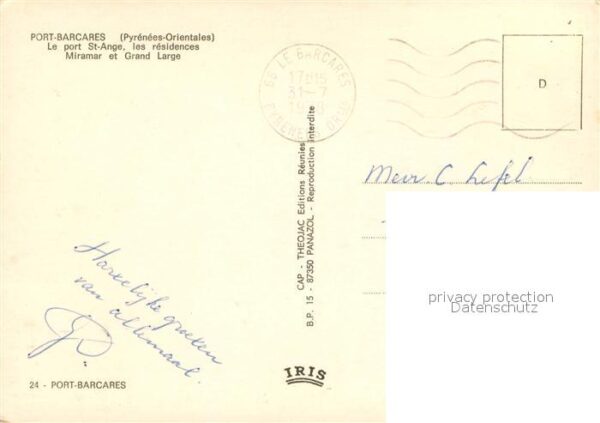 PORT-BARCARES (Pyrénées-Orientales)
Le port St-Ange, les résidences
Miramar et Grand Large
66 LE BARCARES
17H15
31-7
D
CAP - THEOJAC Editions Réunies
B.P. 15 - 87350 PANAZOL - Reproduction interdite
Mevr. C
privacy protection
Datenschutz
Hartelijke groeten
van allemaal.
IRIS
24 - PORT-BARCARES